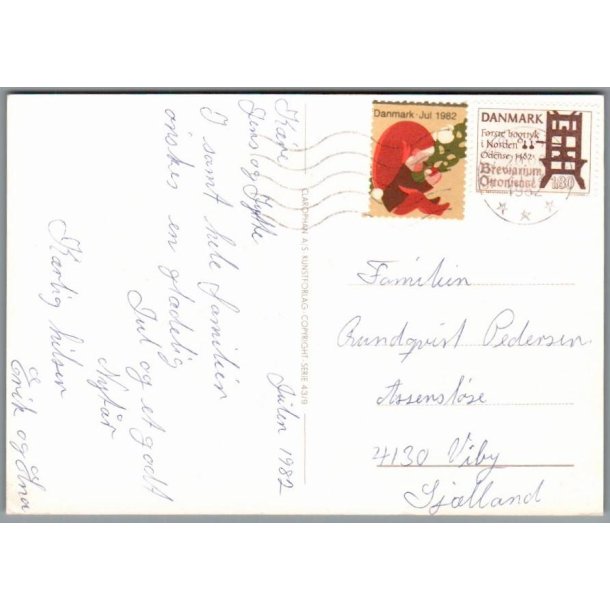 Julen 1982
Kære
Jens og Jytte
I samt hele familien
ønskes en glædelig
Jul og et godt
Nytår
Kærlig hilsen
Erik og Anna
CLAROPHAN A/S KUNSTFORLAG. COPYRIGHT SERIE 43/9
Danmark · Jul 1982
DANMARK
Første bogtryk
i Norden
Odense 1482
Breviarium
Ottoniense
180
1982
Familien
Rundqvist Pedersen
Assensløse
4130 Viby
Sjælland